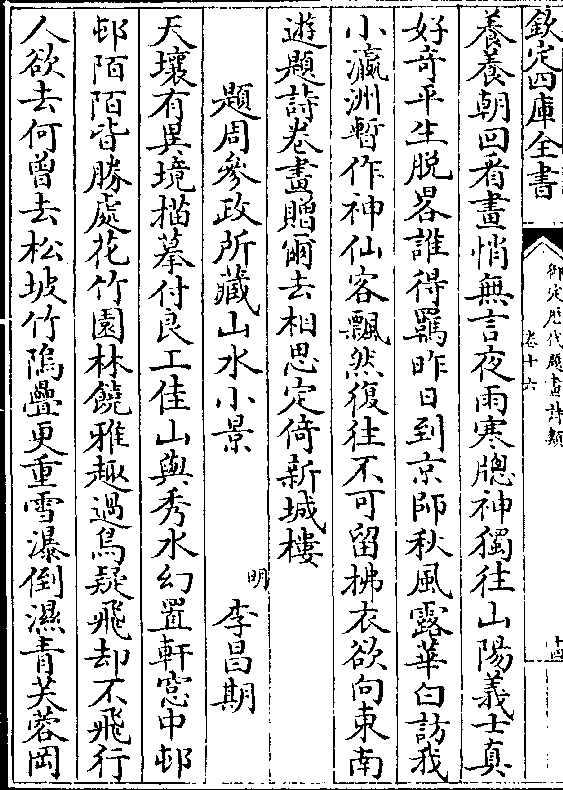 欽定四庫全書
御定歷代題畫詩類
卷十六
十四
養養朝回看畫悄無言夜雨寒牕神獨往山陽義士真
好奇平生脱畧誰得羈昨日到京師秋風露華白訪我
小瀛洲暫作神仙客飄然復往不可留拂衣欲向東南
遊題詩卷畫贈爾去相思定倚新城樓
題周參政所藏山水小景
明 李昌期
天壤有異境描摹付良工佳山與秀水幻置軒窓中邨
邨陌陌皆勝處花竹園林饒雅趣過鳥疑飛却不飛行
人欲去何曾去松坡竹塢疊更重雪瀑倒濕青芙蓉岡